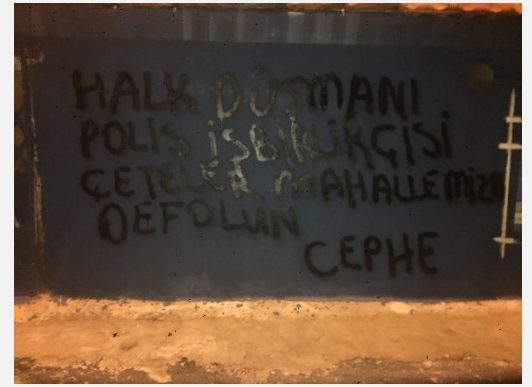 HALK DÜŞMANI
POLİS İŞBİRLİKÇİSİ
ÇETELER MAHALLEMİZDEN
DEFOLUN
CEPHE